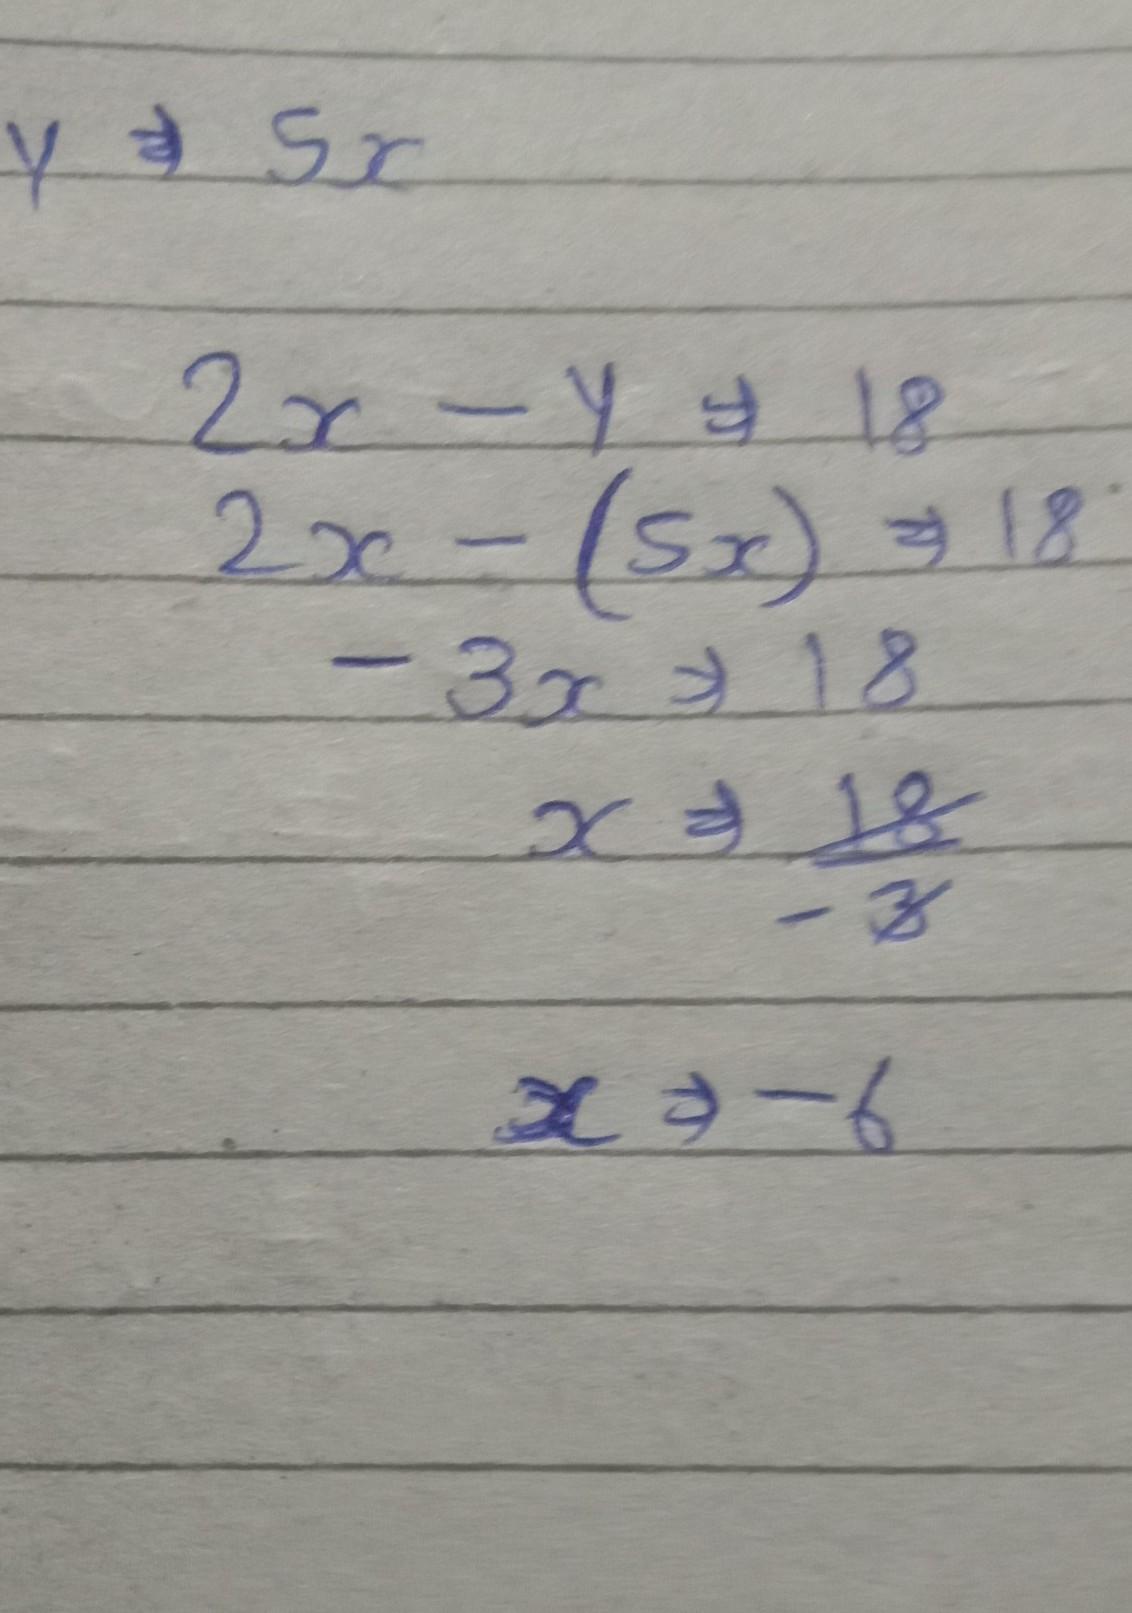 y ⇒ 5x
2x - y ⇒ 18
2x - (5x) ⇒ 18
- 3x ⇒ 18
x ⇒ 18
- 3
x ⇒ - 6